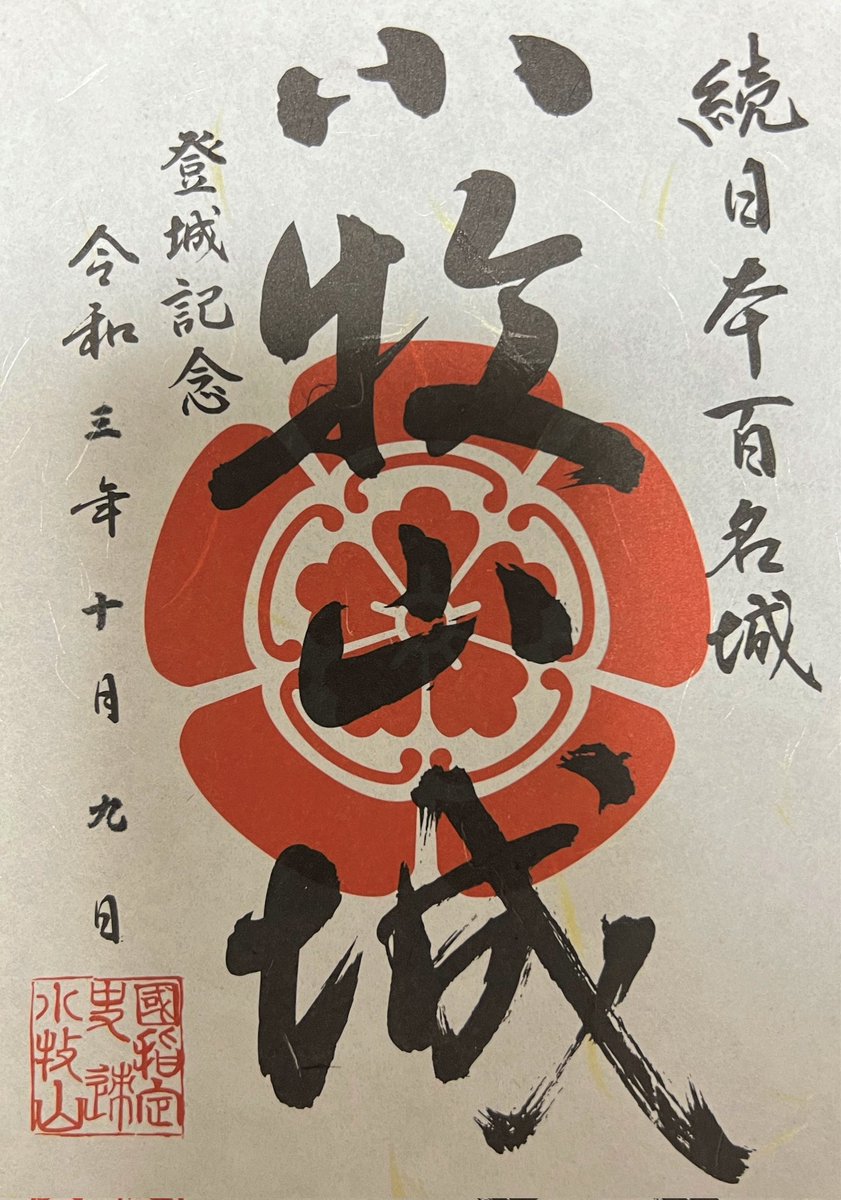 続日本百名城
小牧山城
登城記念
令和三年十月九日
國指定
史跡
小牧山